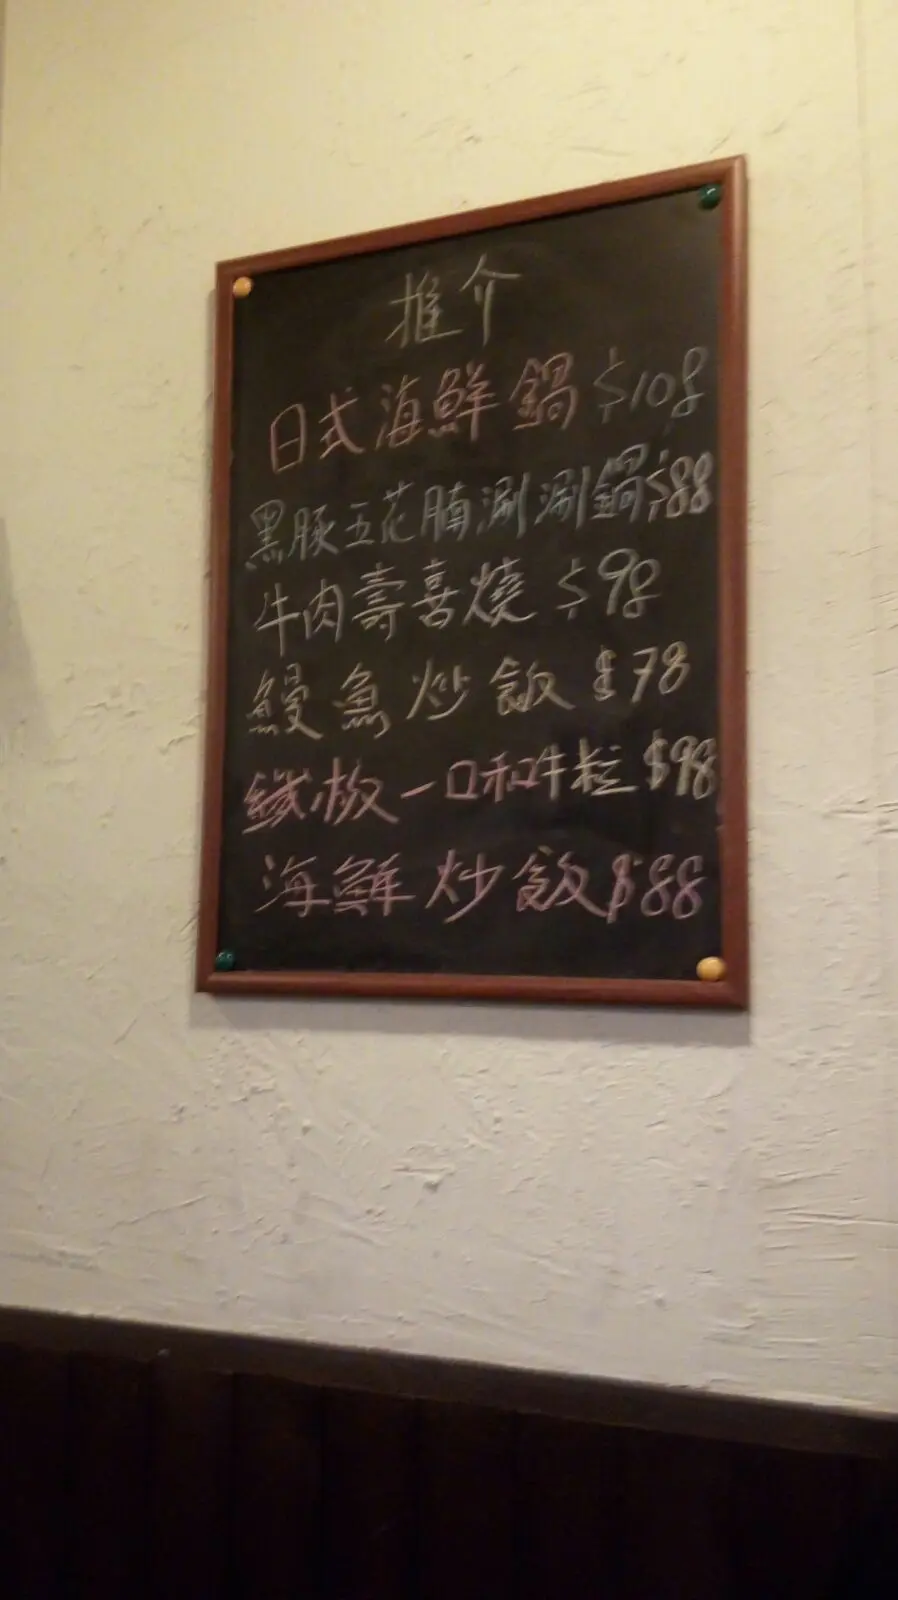 推介
日式海鮮鍋 $108
黑豚五花腩涮涮鍋 $88
牛肉壽喜燒 $98
鰻魚炒飯 $78
鐵板一口和牛粒 $98
海鮮炒飯 $88